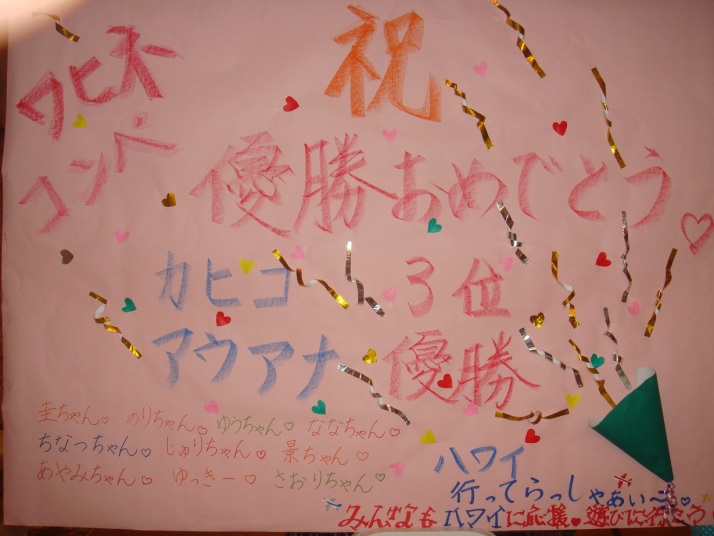 ワヒネ
コンペ
祝
優勝おめでとう♡
カヒコ 3位
アウアナ 優勝
圭ちゃん♡ のりちゃん♡ ゆうちゃん♡ ななちゃん♡
ちなっちゃん♡ じゅりちゃん♡ 景ちゃん♡
あやみちゃん♡ ゆっきー♡ さおりちゃん♡
ハワイ
行ってらっしゃぁい〜
みんなも ハワイに応援♥遊びに行こう